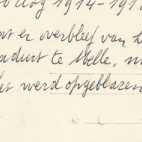 oorlog 1914-191
at er overbleef van h
aduct te Melle, n
et werd opgeblazen